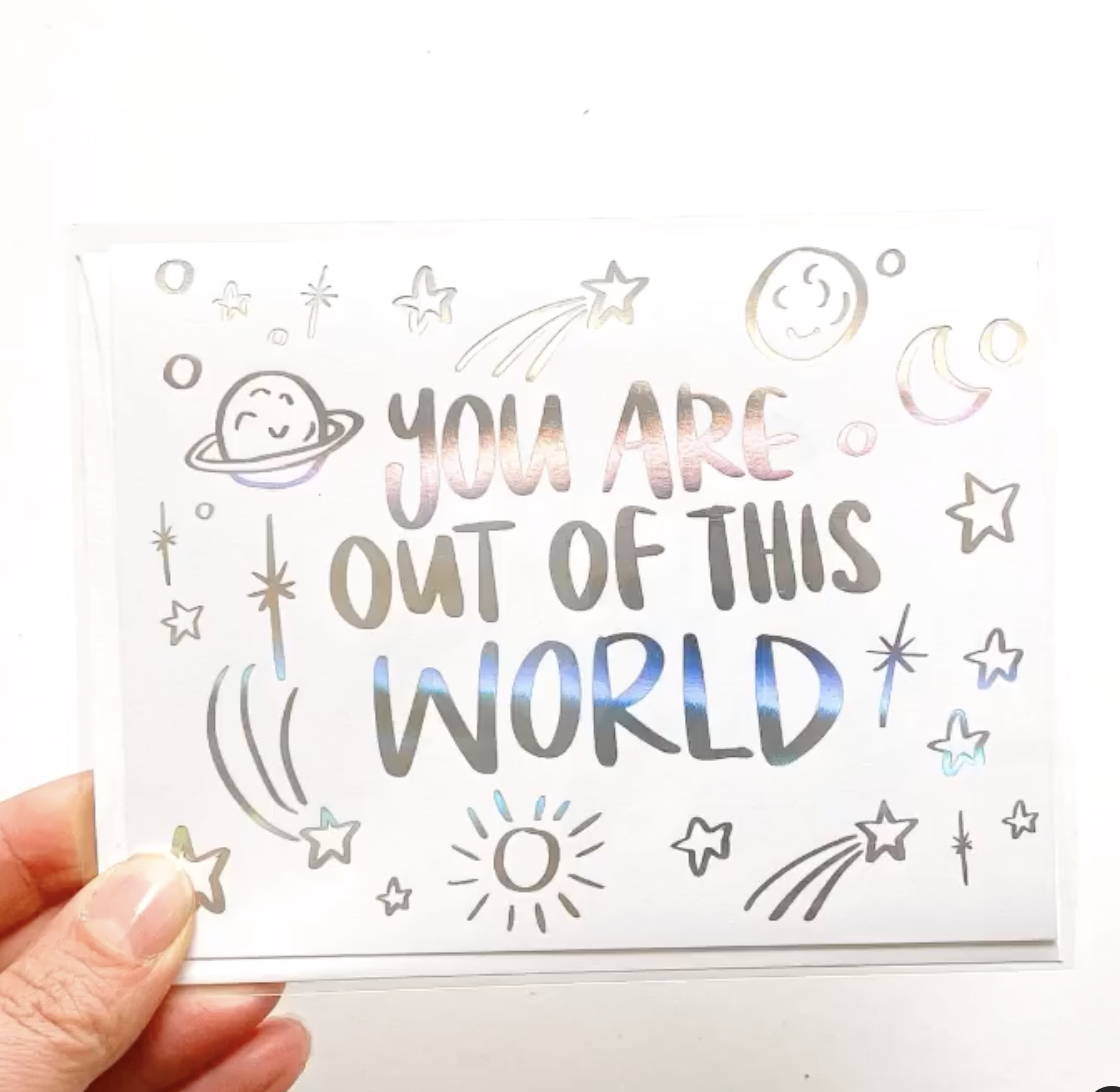 YOU ARE
OUT OF THIS
WORLD